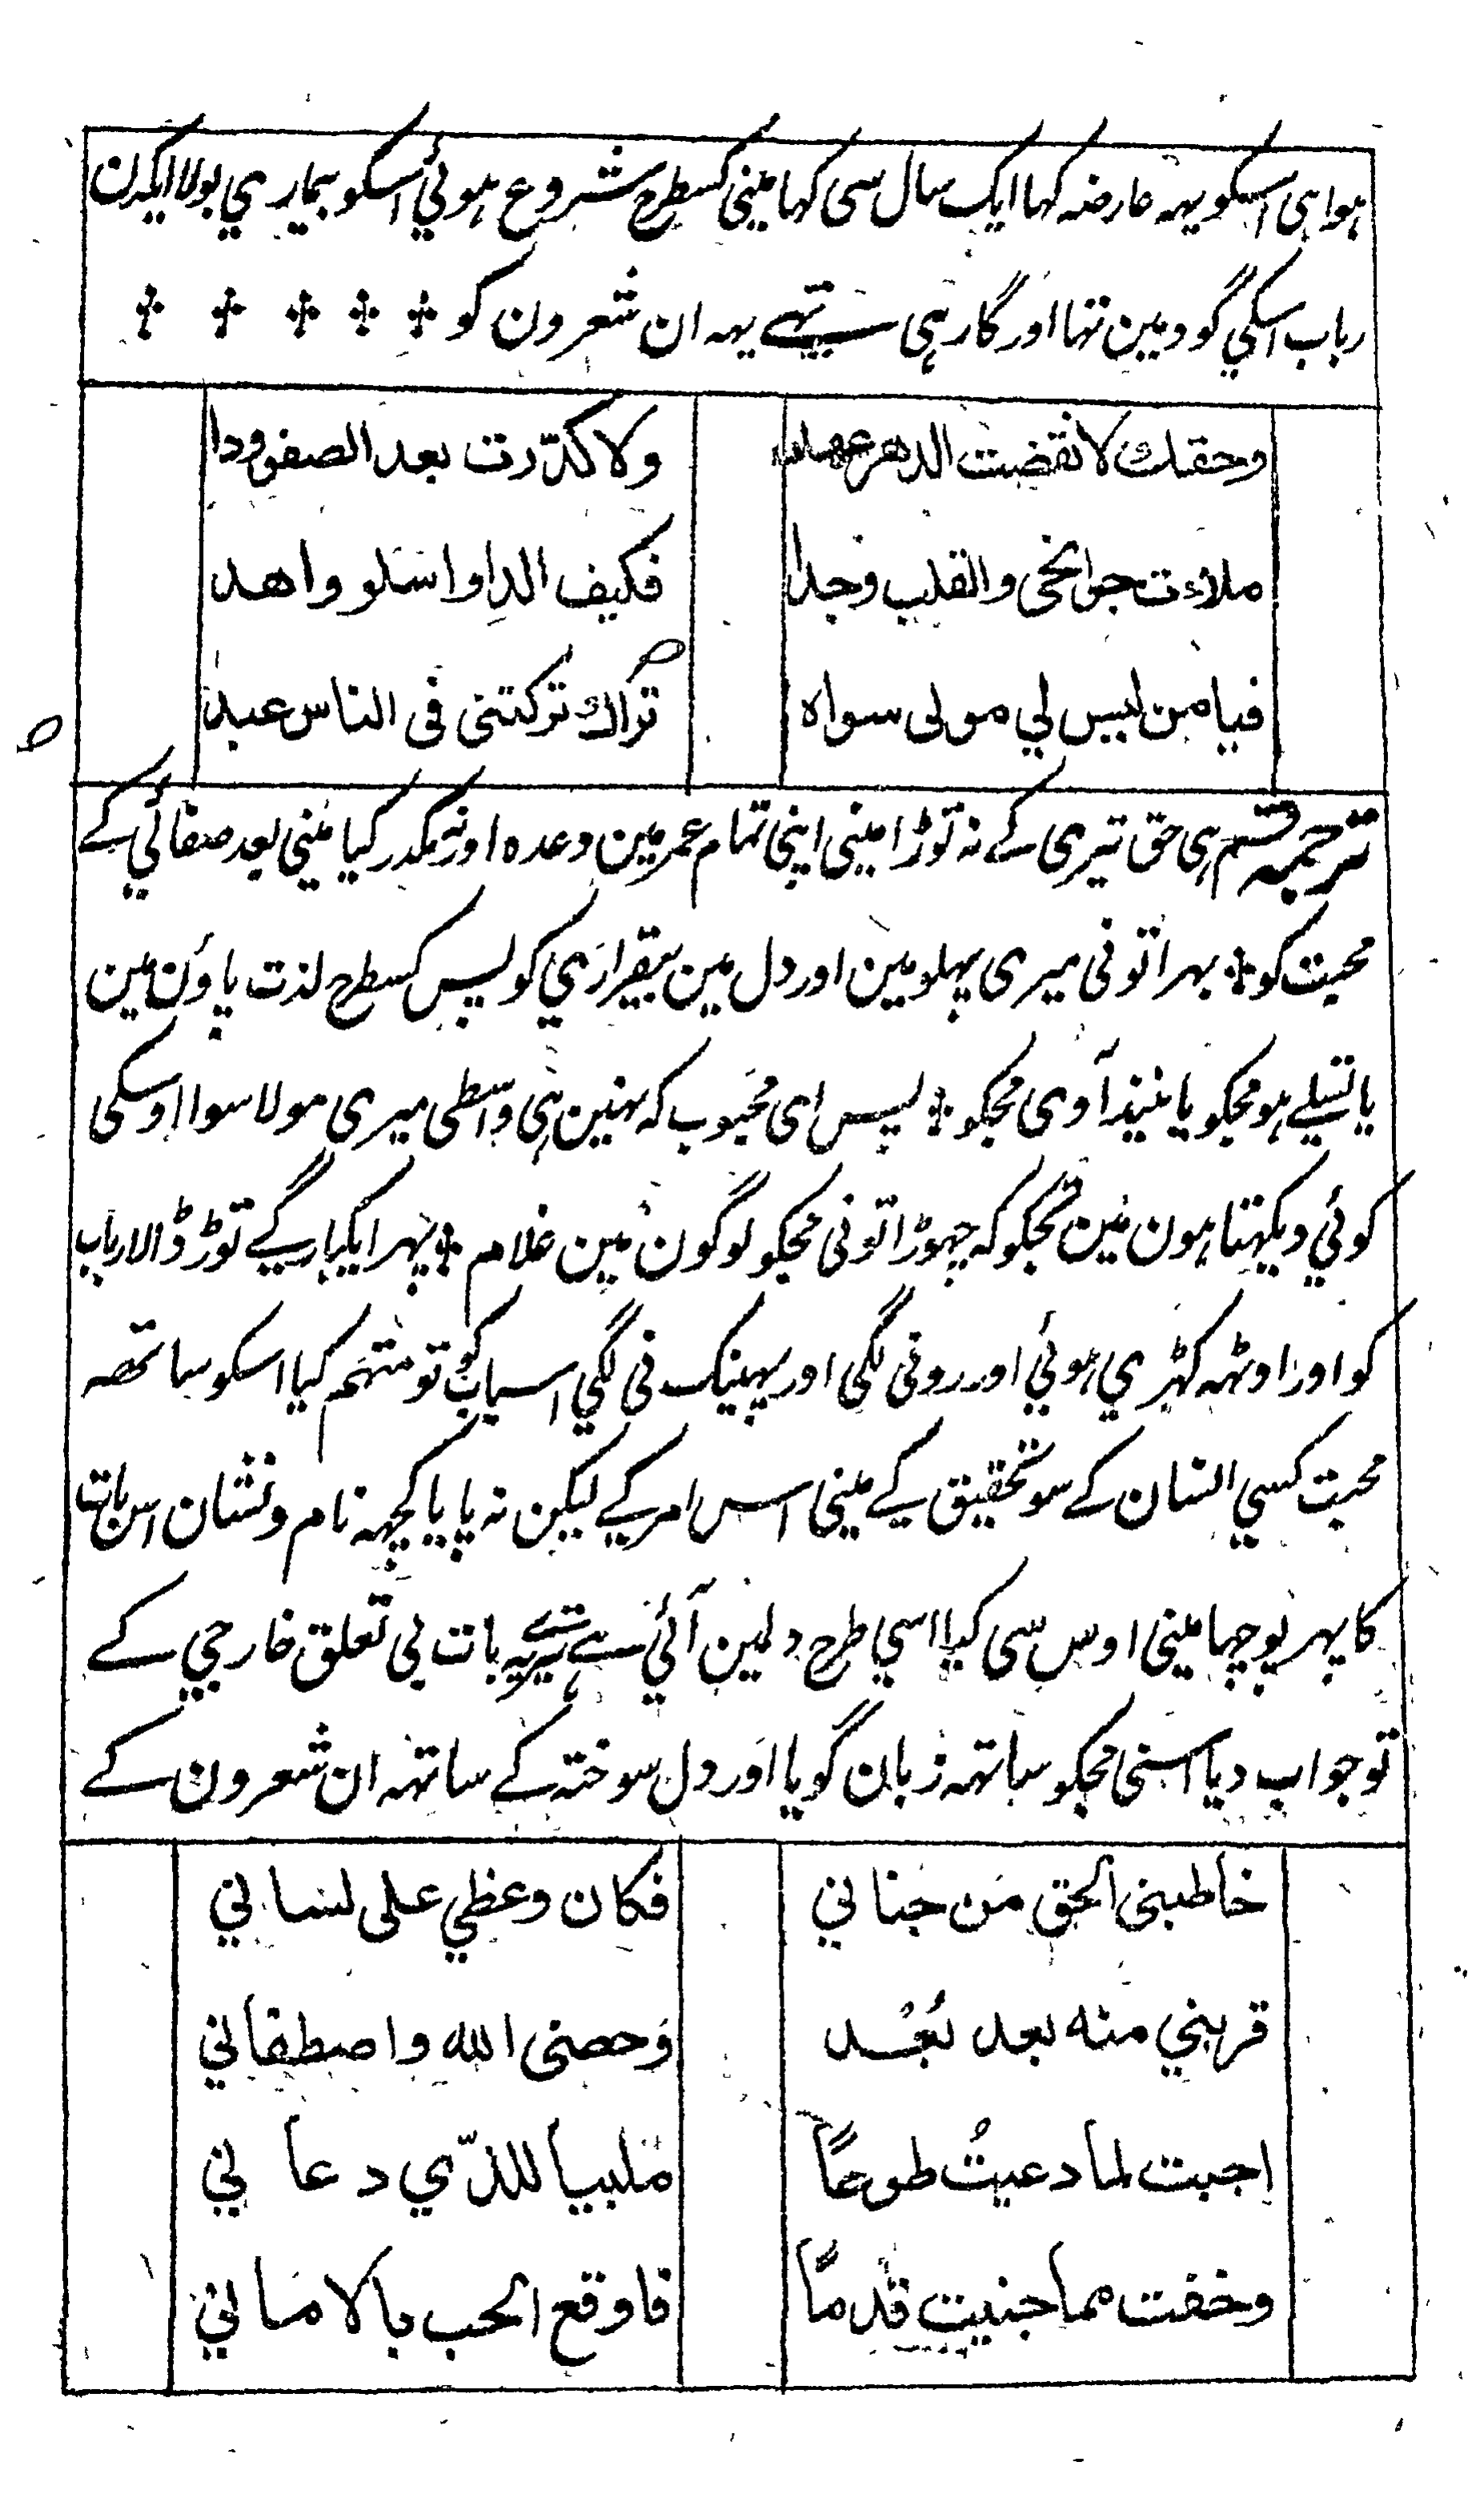 ہوا ہی اسکو یہہ عارضہ کہا ایک سال سی کہا مینی کسطرح شروع ہوئي اسکو بیماري بولا ایکدن
رباب اسکي گود مین تہا اور گا رہی تہے یہہ ان شعرون کو
وحقك لا نقضت الدهر عهدا ولا كدّرت بعد الصفو ودا
ملاءت جوانحی والقلب وجدا فكيف الذ او اسلو واهد
فيا من ليس لي مولى سواه تراك تركتنى فى الناس عبدا
ترجمہ قسم ہی حق تیری کے نہ توڑا مینی اپنی تمام عمر مین وعدہ اور نہ مکدر کیا مینی بعد صفائي کے
محبت کو بہرا تونی میری پہلو مین اور دل مین بیقراري کو پس کسطرح لذت پاؤن مین
یا تسلے ہو مجکو یا نیند آوی مجکو پس ای محبوب کہ نہین ہی واسطی میری مولا سوا اوسکی
کوئي دیکہتا ہون مین تجکو کہ چہوڑا تونی مجکو لوگون مین غلام پہر ایکبارگے توڑ ڈالا رباب
کو اور اوٹہہ کہڑي ہوئي اور رونی لگی اور پہینک نی لگي اسباب کو تو متہم کیا اسکو ساتھہ
محبت کسي انسان کے سو تحقیق کے مینی اس امر کے لیکن نہ پایا کچہہ نام و نشان اس بات
کا پہر پوچہا مینی اوس سی کیا اسي طرح دلمین آئي ہے تیرے یہ بات بی تعلق خارجي کے
تو جواب دیا اسنی مجکو ساتہہ زبان گویا اور دل سوختہ کے ساتہہ ان شعرون کے
خاطبنى الحق من جناني فكان وعظي على لساني
قربني منه بعد بُعْد وخصنى الله واصطفاني
اجبت لما دعيتُ طوعًا ملبيا للذّي دعا ني
وخفت مما جنيت قدمًا فاوقع الحب بالاماني